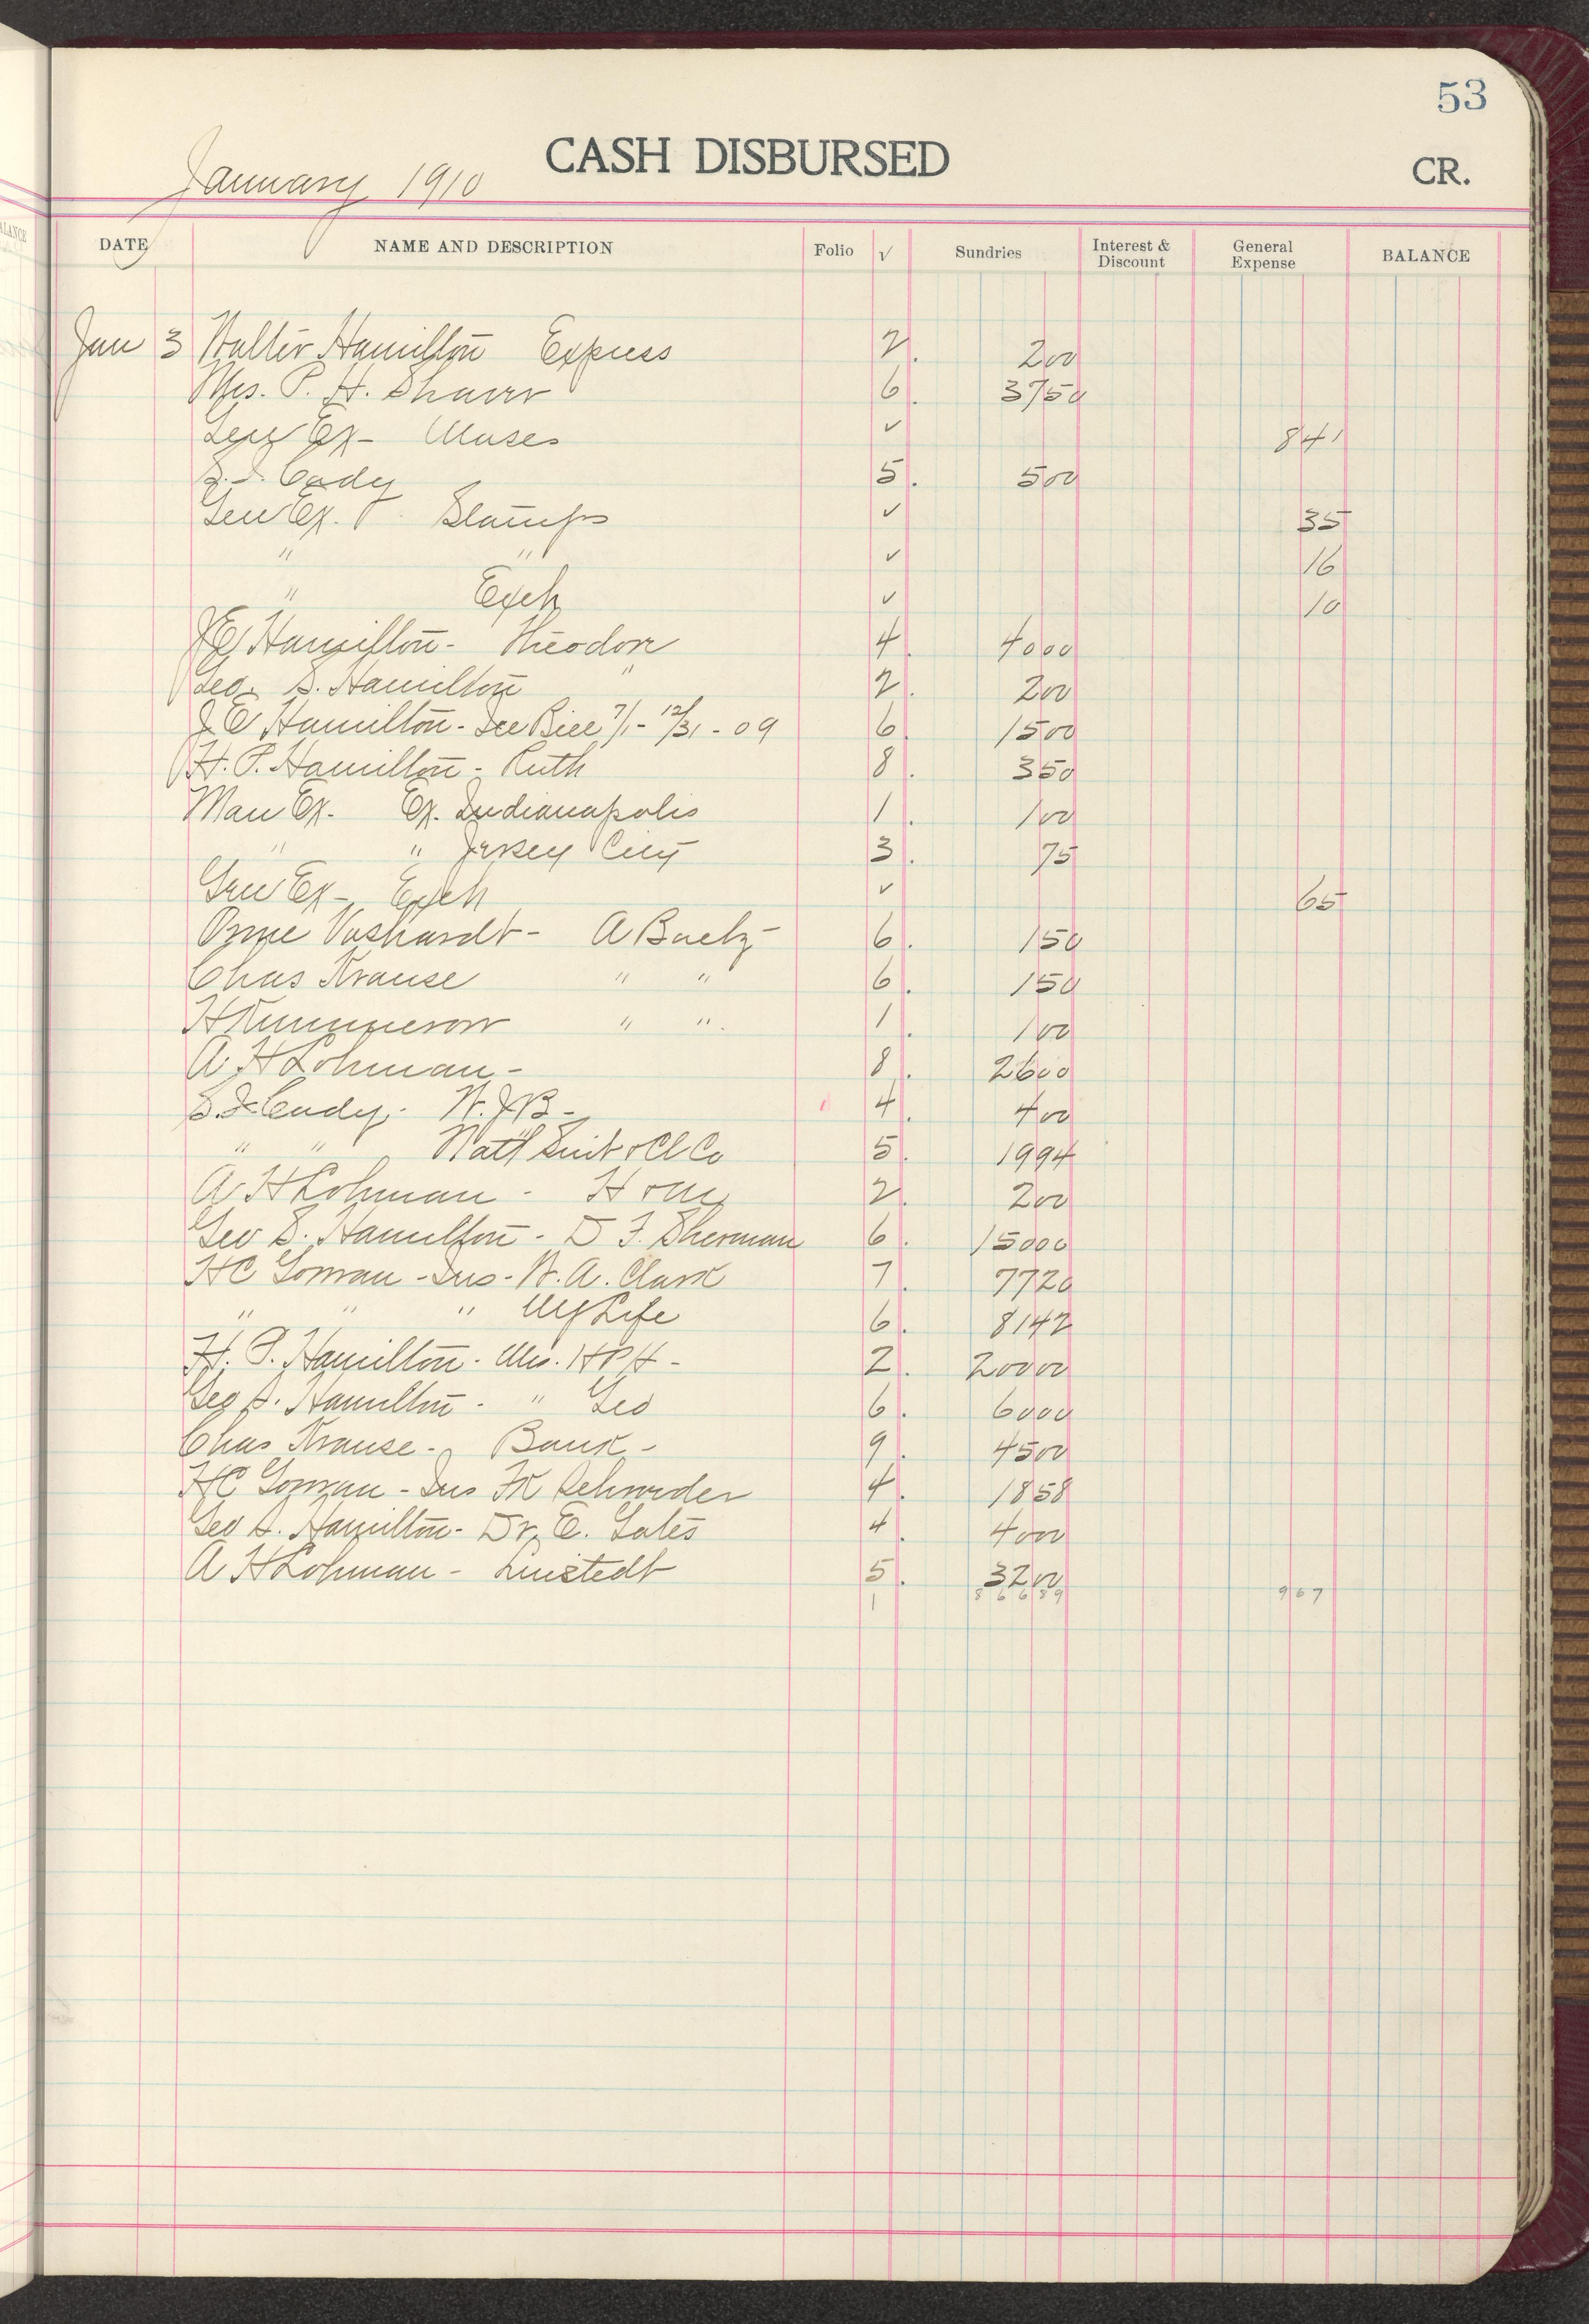 53
January 1910 CASH DISBURSED CR.
ALANCE
DATE NAME AND DESCRIPTION Folio √ Sundries Interest & Discount General Expense BALANCE
Jan 3 Walter Hamilton Express 2. 200
Mrs. P. H. 6. 3750
Gen Ex - Moses ✓ 841
S. I. Cady 5. 500
Gen Ex. Stamps ✓ 35
" " ✓ 16
" Exch ✓ 10
J E Hamilton - Theodore 4. 4000
Geo. S. Hamilton " 2. 200
J E Hamilton - Ice Bill 7/1 - 12/31 - 09 6. 1500
H. P. Hamilton - Ruth 8. 350
Man Ex. Ex. Indianapolis 1. 100
" " Jersey City 3. 75
Gen Ex - Exch ✓ 65
- A 6. 150
Chas Krause " " 6. 150
H " " 1. 100
A H Lohman - 8. 2600
S. I. Cady - W. J. B - 4. 400
" " Nat'l Suit & Cl Co 5. 1994
A H Lohman - H 2. 200
Geo S. Hamilton - D F. Sherman 6. 15000
H C Gowran - Ins - W. A. Clark 7. 7720
" " " Life 6. 8142
H. P. Hamilton - Mrs. H P H - 2. 20000
Geo S. Hamilton - " Geo 6. 6000
Chas Krause - Bank - 9. 4500
H C Gowran - Ins 4. 1858
Geo S. Hamilton - Dr. E. Gates 4. 4000
A H Lohman - 5. 3200
1 86689 967